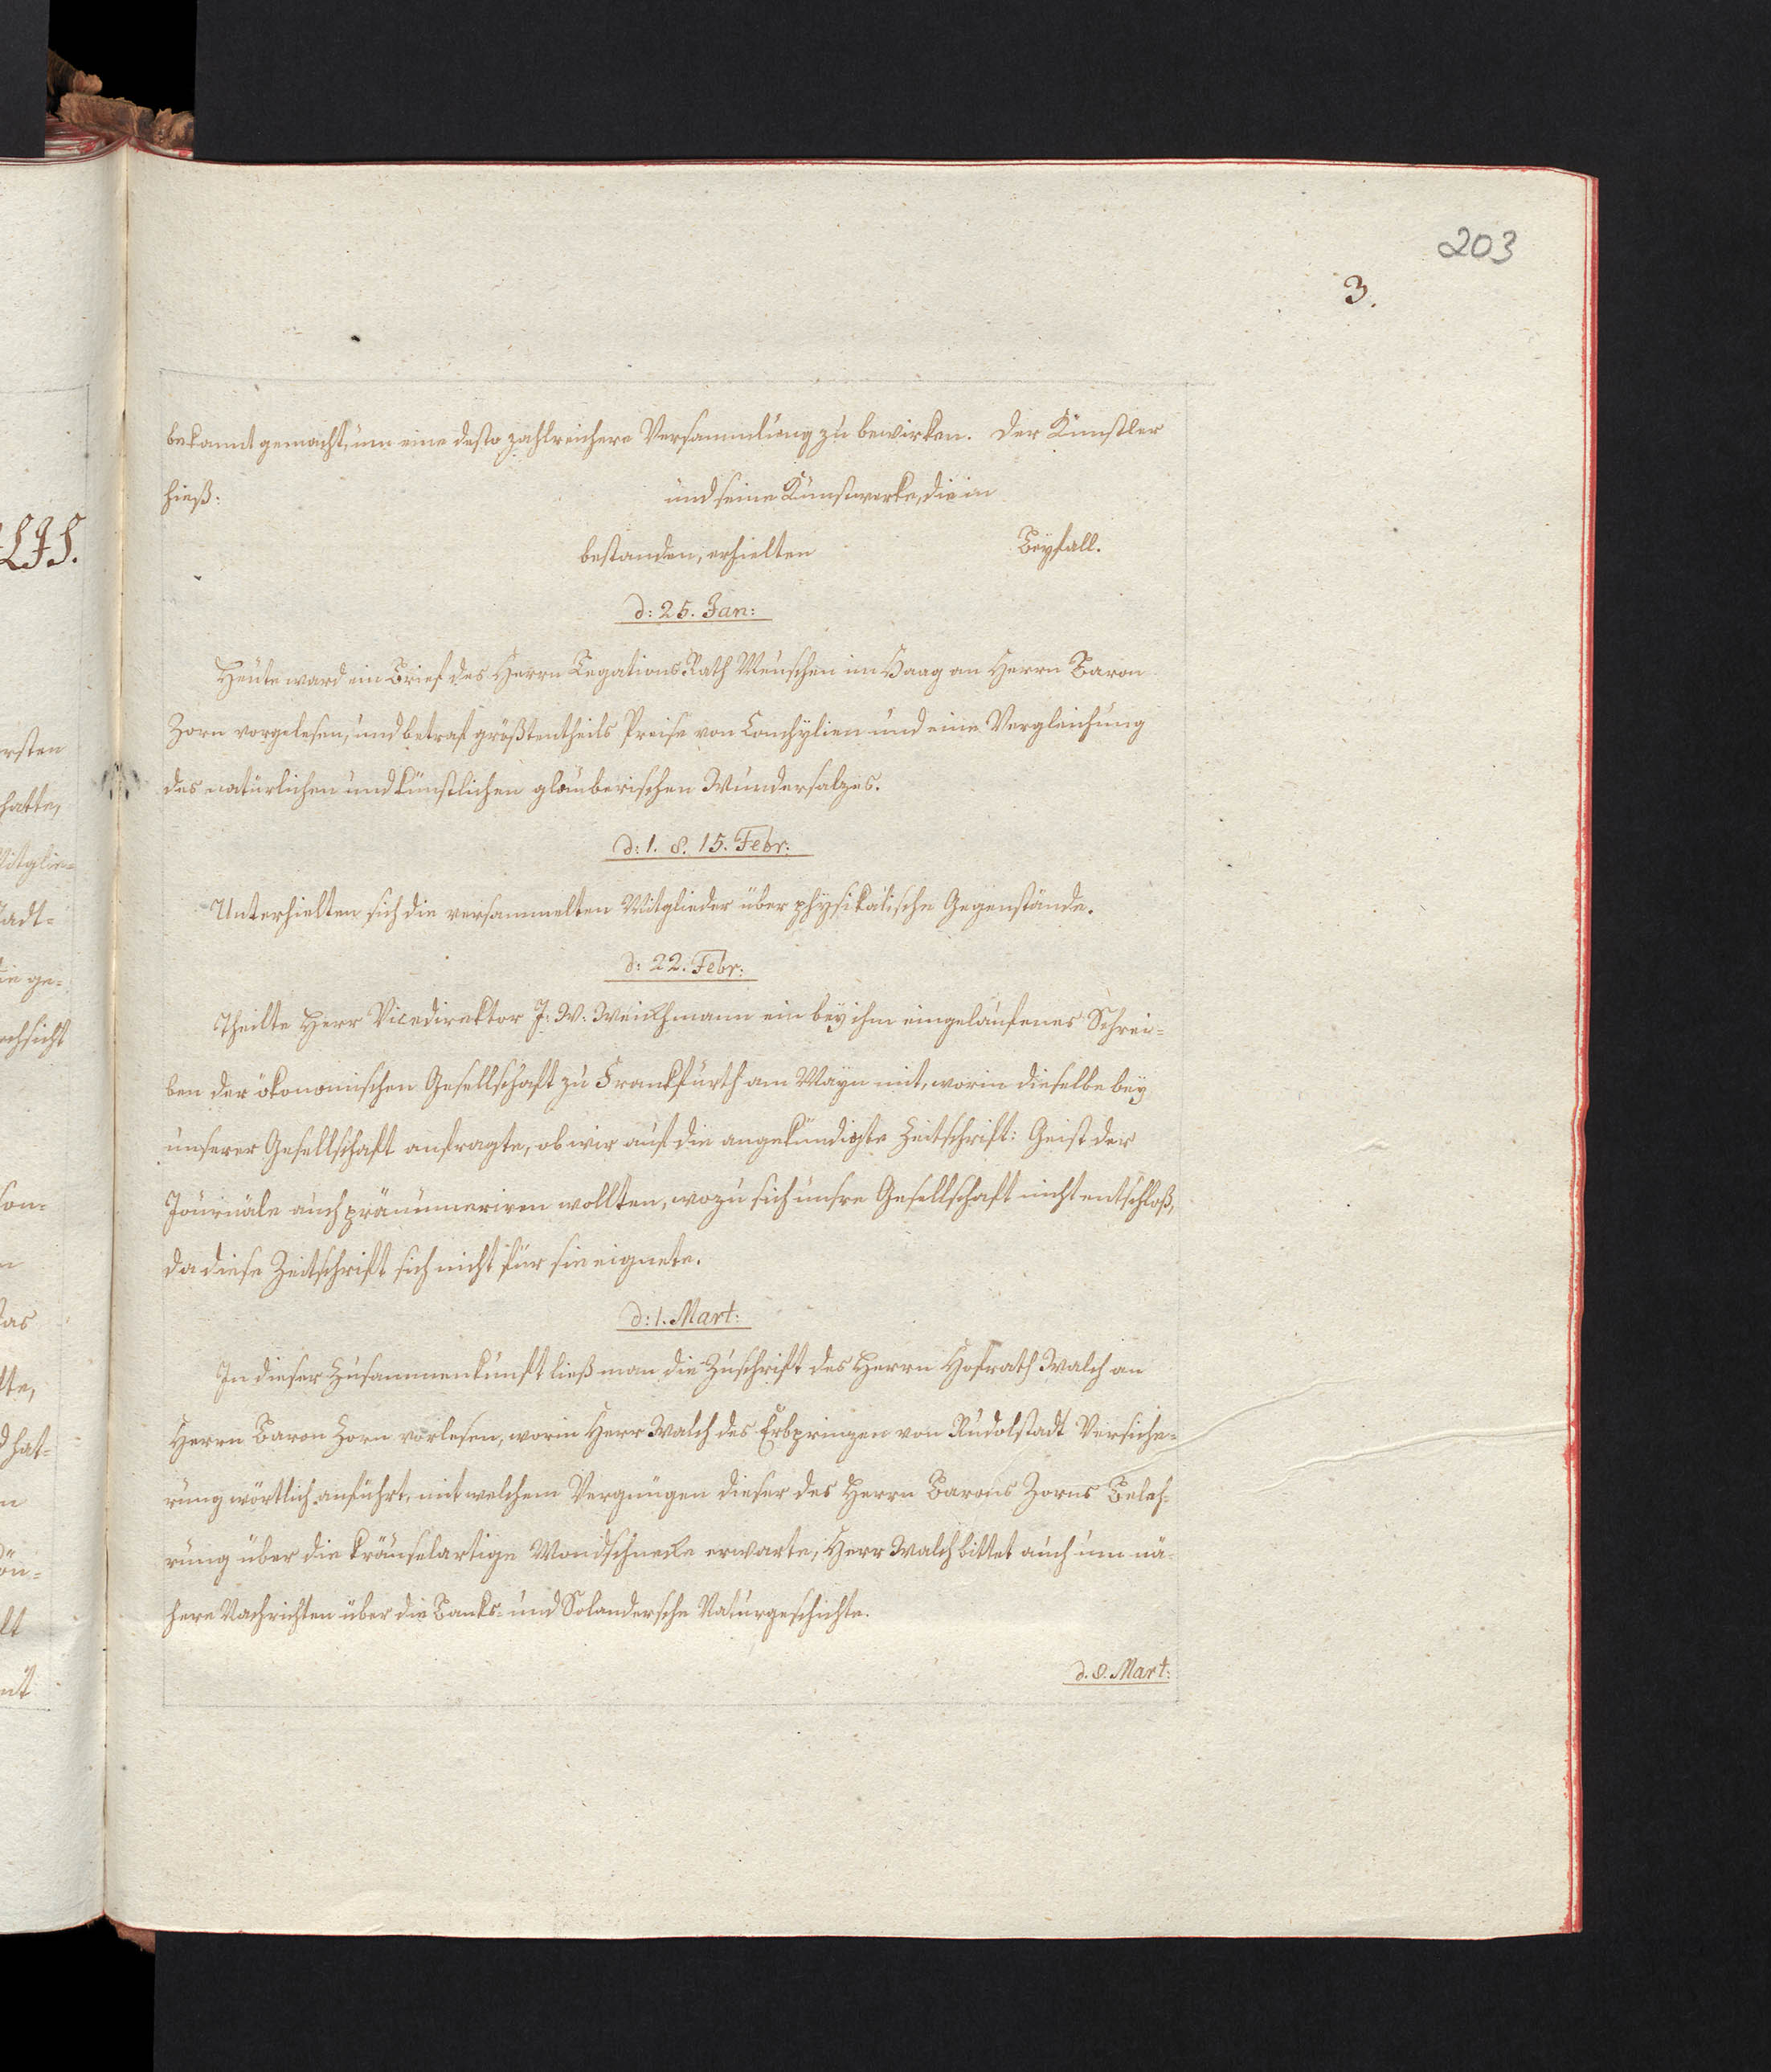 203
3.
bekannt gemacht, um eine desto zahlreichere Versammlung zu bewirken. Der Künstler
hieß: und seine Kunstwerke, die in
bestanden, erhielten Beyfall.
d: 25. Jan:
Heute ward ein Brief des Herrn LegationsRath Meuschen im Haag an Herrn Baron
Zorn vorgelesen, und betraf größtentheils Preise von Conchylien und eine Vergleichung
des natürlichen und künstlichen glauberischen Wundersalzes.
d: 1. 8. 15. Febr:
Unterhielten sich die versammelten Mitglieder über physikalische Gegenstände.
d: 22. Febr:
Theilte Herr Vicedirektor J: W: Weickhmann ein bey ihm eingelaufenes Schrei-
ben der ökonomischen Gesellschaft zu Frankfurth am Mayn mit, worin dieselbe bey
unserer Gesellschaft anfragte, ob wir auf die angekündigte Zeitschrift: Geist der
Journäle auch pränumeriren wollten, wozu sich unsre Gesellschaft nicht entschloß,
da diese Zeitschrift sich nicht für sie eignete.
d: 1. Mart:
In dieser Zusammenkunft ließ man die Zuschrift des Herrn Hofrath Walch an
Herrn Baron Zorn vorlesen, worin Herr Walch des Erbprinzen von Rudolstadt Versiche-
rung wörtlich anführt, mit welchem Vergnügen dieser des Herrn Barons Zorns Beleh-
rung über die kräuselartige Mondschnecke erwarte, Herr Walch bittet auch um nä-
here Nachrichten über die Banks- und Solandersche Naturgeschichte.
d. 8. Mart: